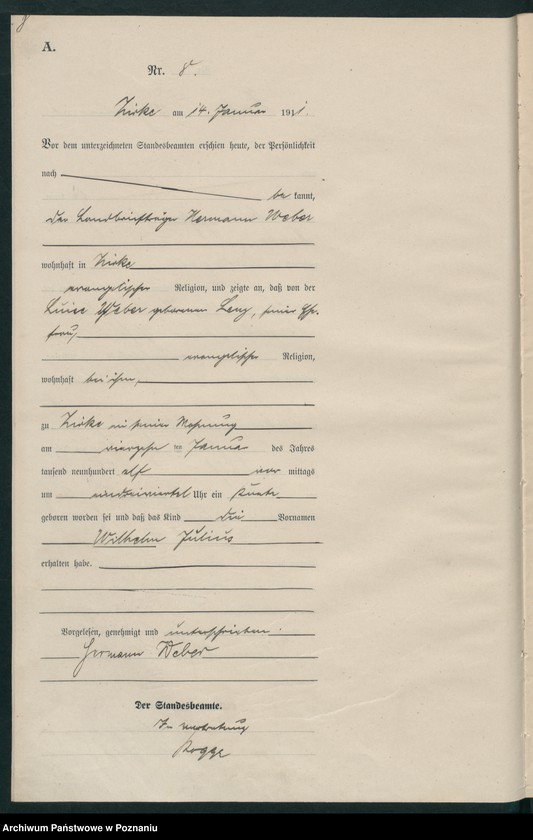 8
A.
Nr. 8.
Zirke am 14. Januar 1911.
Vor dem unterzeichneten Standesbeamten erschien heute, der Persönlichkeit
nach
be kannt,
der Landbriefträger Hermann Weber
wohnhaft in Zirke
evangelischer Religion, und zeigte an, daß von der
Luise Weber geborenen Lenz, seiner Ehe-
frau,
evangelischer Religion,
wohnhaft bei ihm,
zu Zirke in seiner Wohnung
am vierzehnten Januar des Jahres
tausend neunhundert elf vor mittags
um Uhr ein Knabe
geboren worden sei und daß das Kind die Vornamen
Wilhelm Julius
erhalten habe.
Vorgelesen, genehmigt und unterschrieben.
Hermann Weber
Der Standesbeamte.
In Vertretung
Rogge
Archiwum Państwowe w Poznaniu